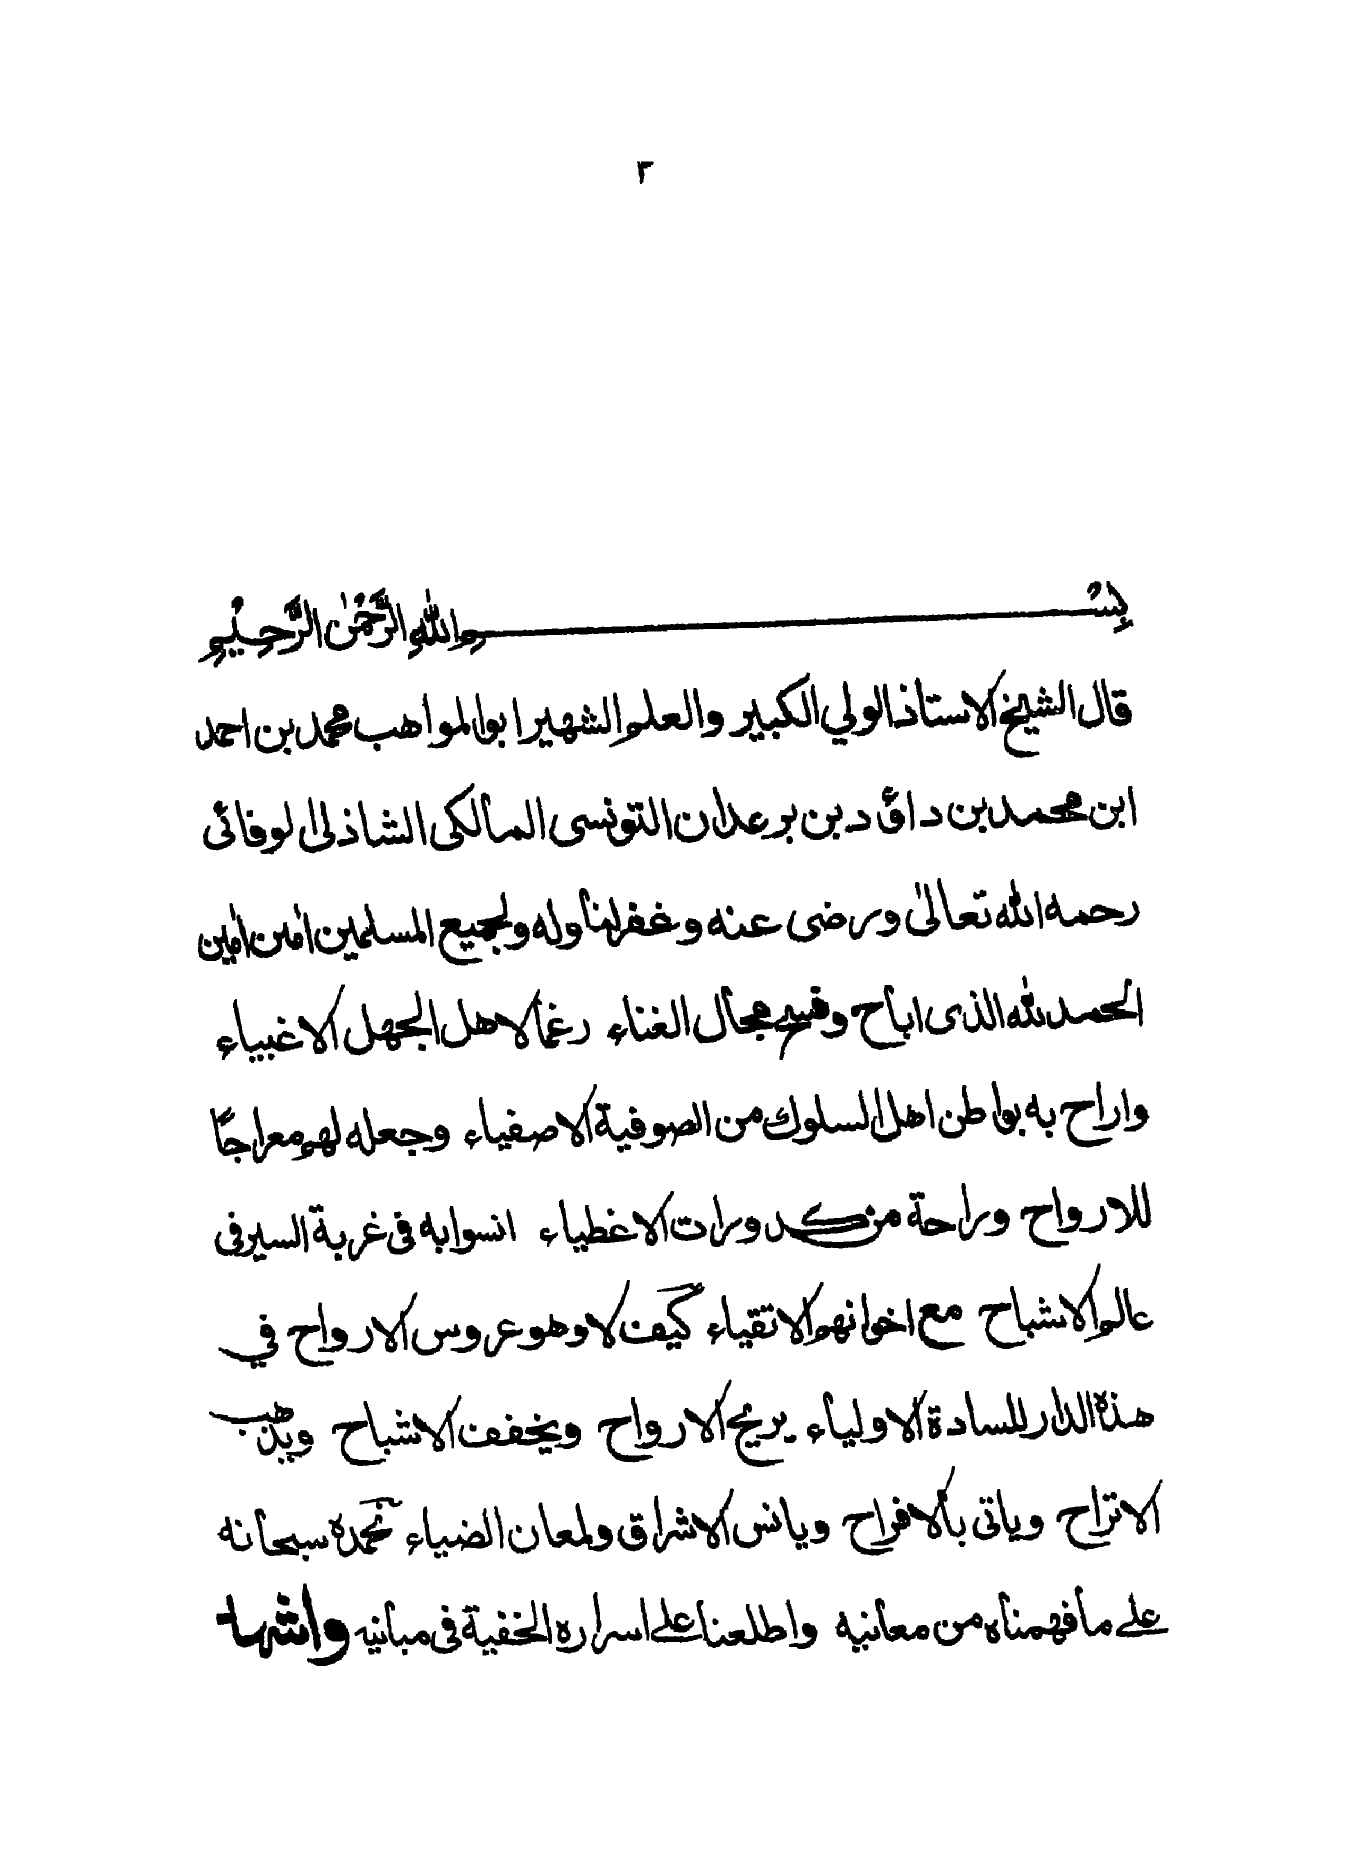 ٢
بِسْمِ اللّٰهِ الرَّحْمٰنِ الرَّحِيْمِ
قال الشيخ الاستاذ الولي الكبير والعلم الشهير ابوالمواهب محمد بن احمد
ابن محمد بن داؤد بن برعدان التونسى المالكى الشاذلى الوفائى
رحمه الله تعالىٰ ورضى عنه وغفرلنا وله ولجميع المسلمين اٰمين اٰمين
الحمد لله الذى اباح وفسح مجال الغناء رغما لاهل الجهل الاغبياء
واراح به بواطن اهل السلوك من الصوفية الاصفياء وجعله لهم معراجًا
للارواح وراحة من كدورات الاغطياء انسوا به فى غربة السير فى
عالم الاشباح مع اخوانهم الاتقياء كيف لا وهو عروس الارواح في
هذه الدار للسادة الاولياء يريح الارواح ويخفف الاشباح ويذهب
الاتراح وياتى بالافراح ويانس الاشراق ولمعان الضياء نحمده سبحانه
على ما فهمناه من معانيه واطلعنا على اسراره الخفية فى مبانيه واشها